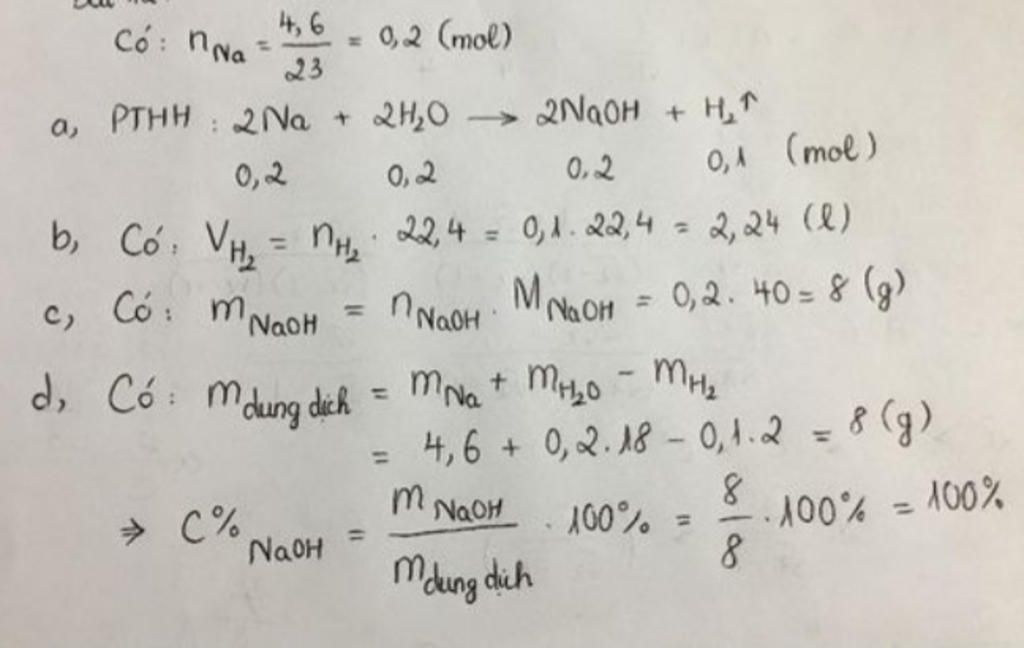 Có: nNa = 4,6/23 = 0,2 (mol)
a, PTHH: 2Na + 2H₂O → 2NaOH + H₂↑
0,2 0,2 0,2 0,1 (mol)
b, Có: VH₂ = nH₂ . 22,4 = 0,1. 22,4 = 2,24 (l)
c, Có: mNaOH = nNaOH . MNaOH = 0,2. 40 = 8 (g)
d, Có: mdung dịch = mNa + mH₂O - mH₂
= 4,6 + 0,2.18 - 0,1.2 = 8 (g)
⇒ C%NaOH = mNaOH/mdung dịch . 100% = 8/8 . 100% = 100%